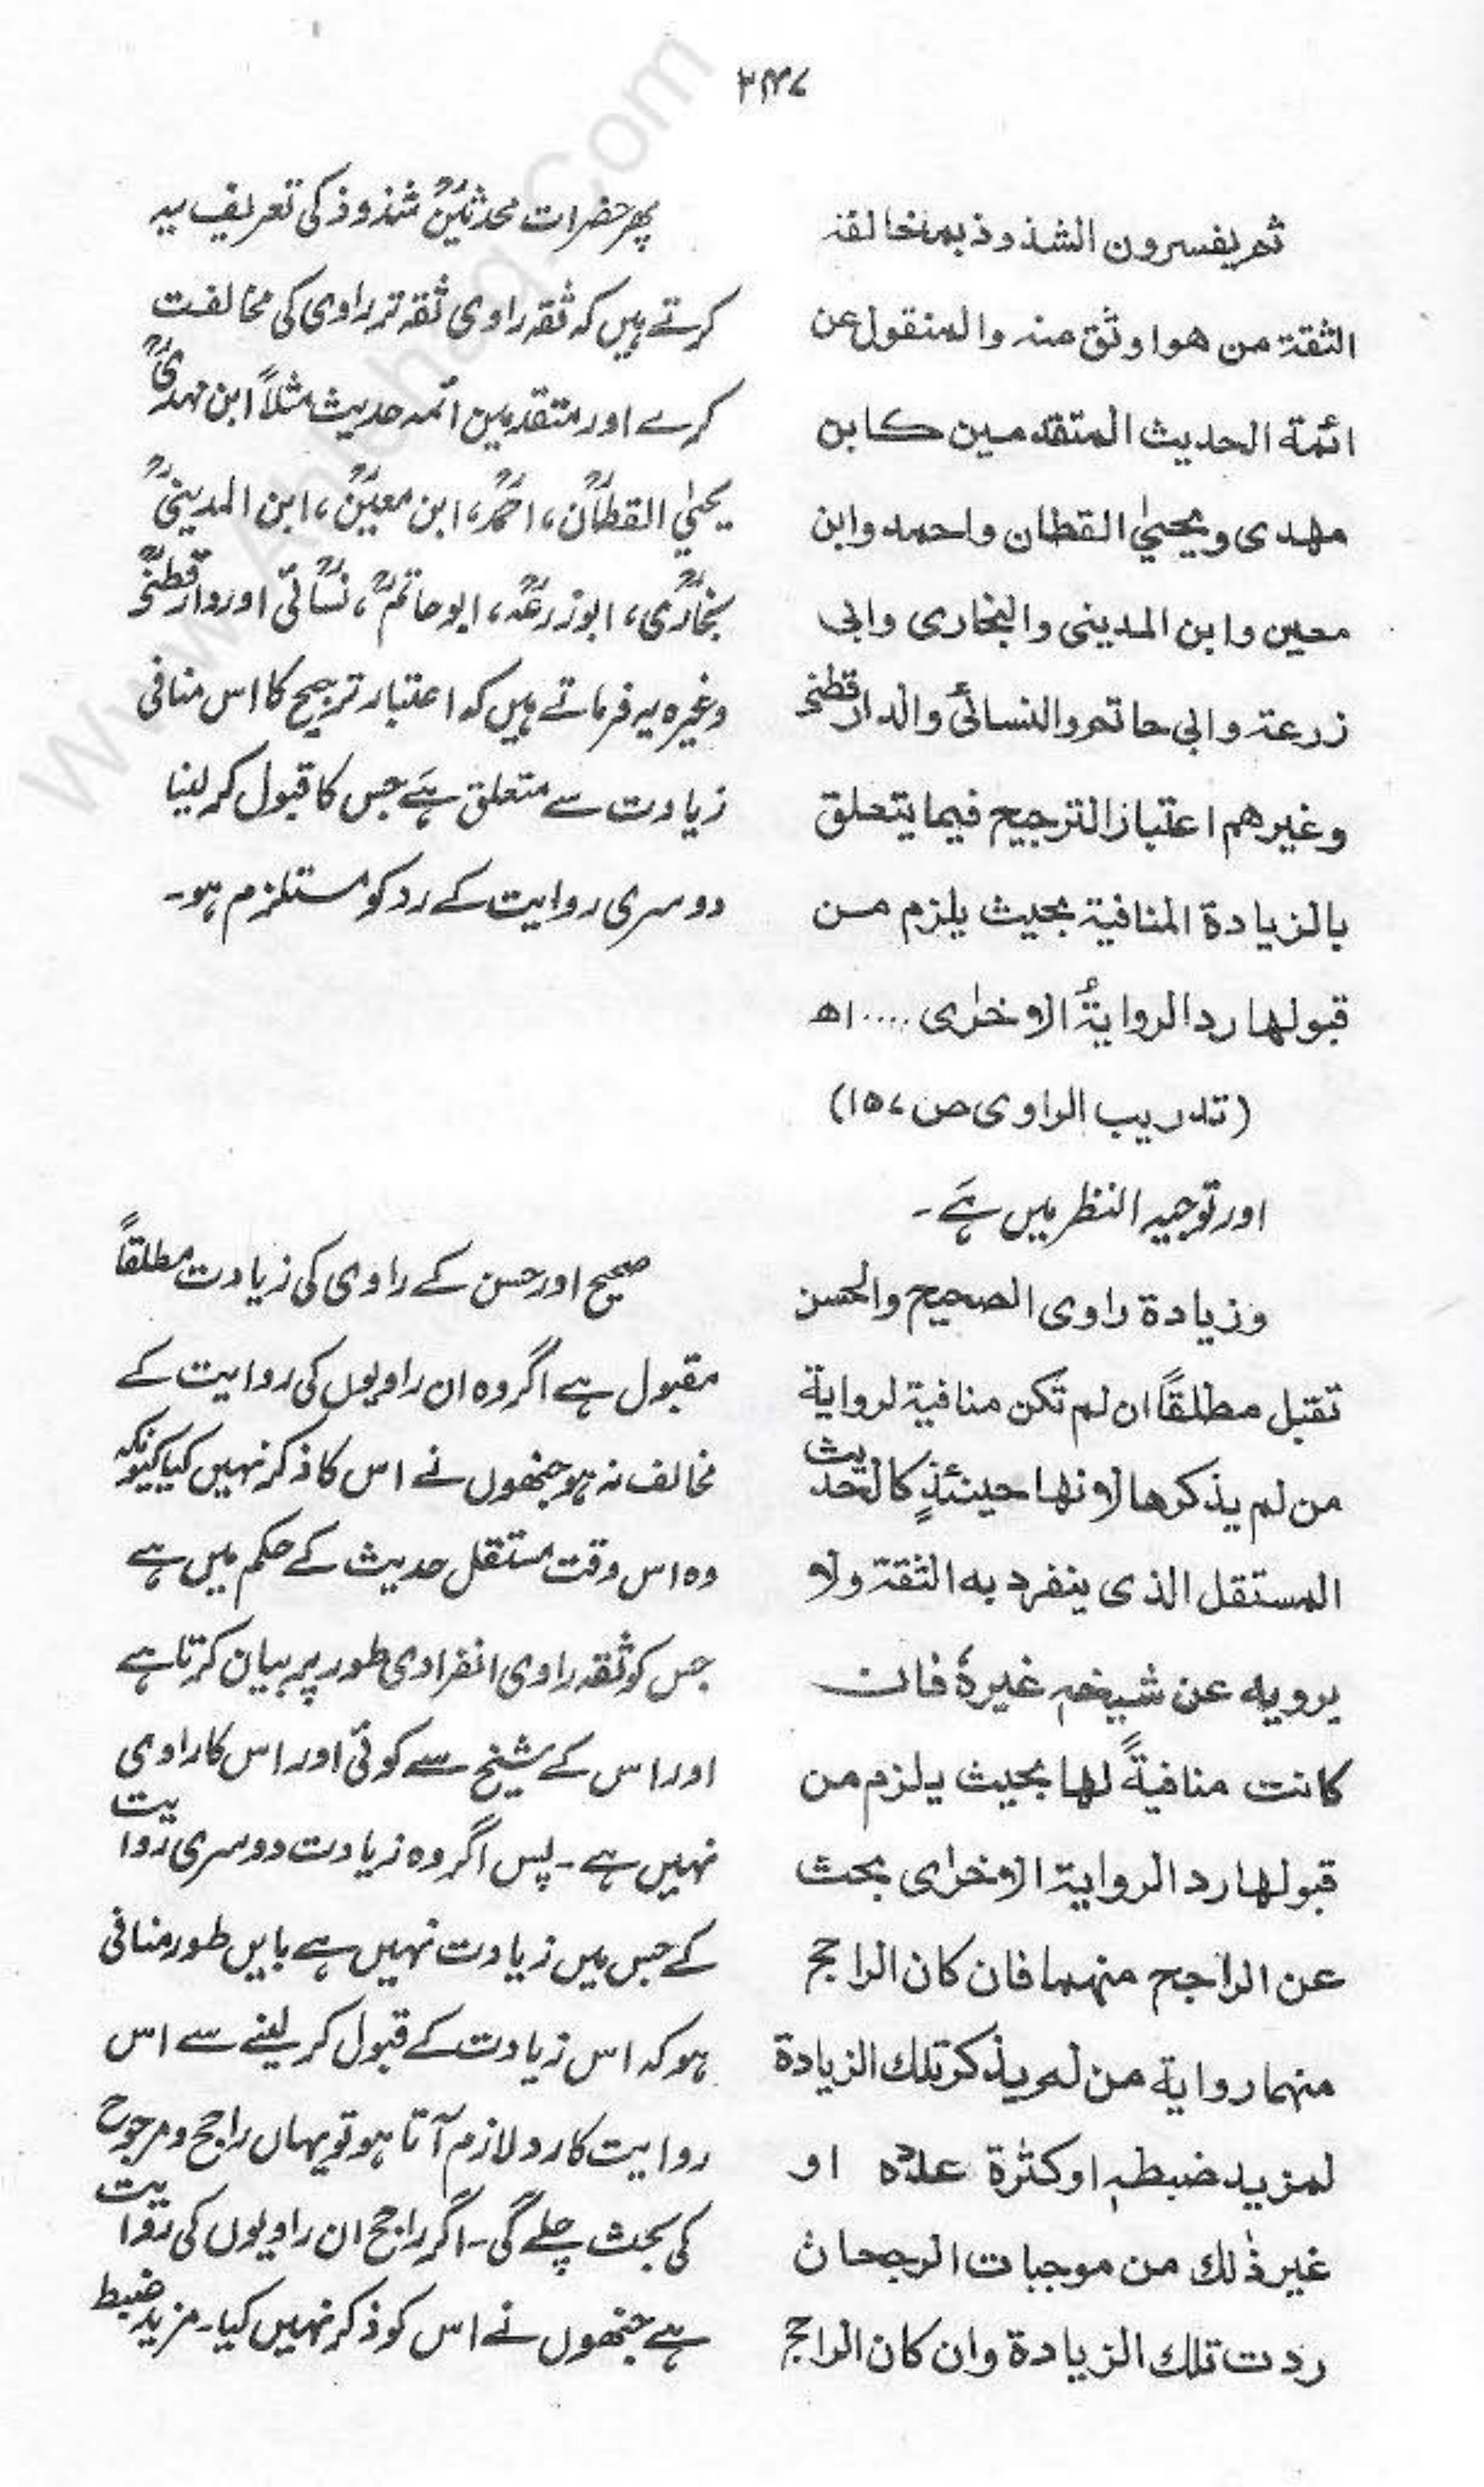 ۲۴۷
ثم يفسرون الشذوذ بمخالفة
الثقة من هو اوثق منه والمنقول عن
ائمة الحديث المتقدمين كابن
مهدى ويحيىٰ القطان واحمد وابن
معين وابن المدينى والبخارى وابى
زرعة وابى حاتم والنسائىؒ والدارقطنى
وغيرهم اعتبار الترجيح فيما يتعلق
بالزيادة المنافية بحيث يلزم من
قبولها رد الروايةُ الاخرٰى .... اھ
(تدريب الراوى ص ۱۵۷)
پھر حضرات محدثینؒ شذوذ کی تعریف یہ
کرتے ہیں کہ ثقہ راوی ثقہ تر راوی کی مخالفت
کرے اور متقدمین ائمہ حدیث مثلاً ابن مہدیؒ
یحیٰی القطانؒ، احمدؒ، ابن معینؒ، ابن المدینیؒ
بخاریؒ، ابوزرعہؒ، ابوحاتمؒ، نسائیؒ اور دارقطنیؒ
وغیرہ یہ فرماتے ہیں کہ اعتبار ترجیح کا اس منافی
زیادت سے متعلق ہَے جس کا قبول کر لینا
دوسری روایت کے رد کو مستلزم ہو۔
اور توجیہ النظر میں ہَے ۔
وزيادة راوى الصحيح والحسن
تقبل مطلقاً ان لم تكن منافية لرواية
من لم يذكرها لانها حينئذٍ كالحديث
المستقل الذى ينفرد به الثقة ولا
يرويه عن شيخه غيرهٗ فان
كانت منافيةً لها بحيث يلزم من
قبولها رد الرواية الاخرٰى بحث
عن الراجح منهما فان كان الراجح
منهما رواية من لم يذكر تلك الزيادة
لمزيد ضبطهٖ اوكثرة عددٍه او
غير ذٰلك من موجبات الرجحان
ردت تلك الزيادة وان كان الراجح
صحیح اور حسن کے راوی کی زیادت مطلقاً
مقبول ہے اگر وہ ان راویوں کی روایت کے
مخالف نہ ہو جنھوں نے اس کا ذکر نہیں کیا کیونکہ
وہ اس وقت مستقل حدیث کے حکم میں ہے
جس کو ثقہ راوی انفرادی طور پر بیان کرتا ہے
اور اس کے شیخ سے کوئی اور اس کا راوی
نہیں ہے ۔ پس اگر وہ زیادت دوسری روایت
کے جس میں زیادت نہیں ہے بایں طور منافی
ہو کہ اس زیادت کے قبول کر لینے سے اس
روایت کا رد لازم آتا ہو تو یہاں راجح و مرجوح
کی بحث چلے گی ۔ اگر راجح ان راویوں کی روایت
ہے جنھوں نے اس کو ذکر نہیں کیا۔ مزید ضبط
www.Ahlehaq.Com